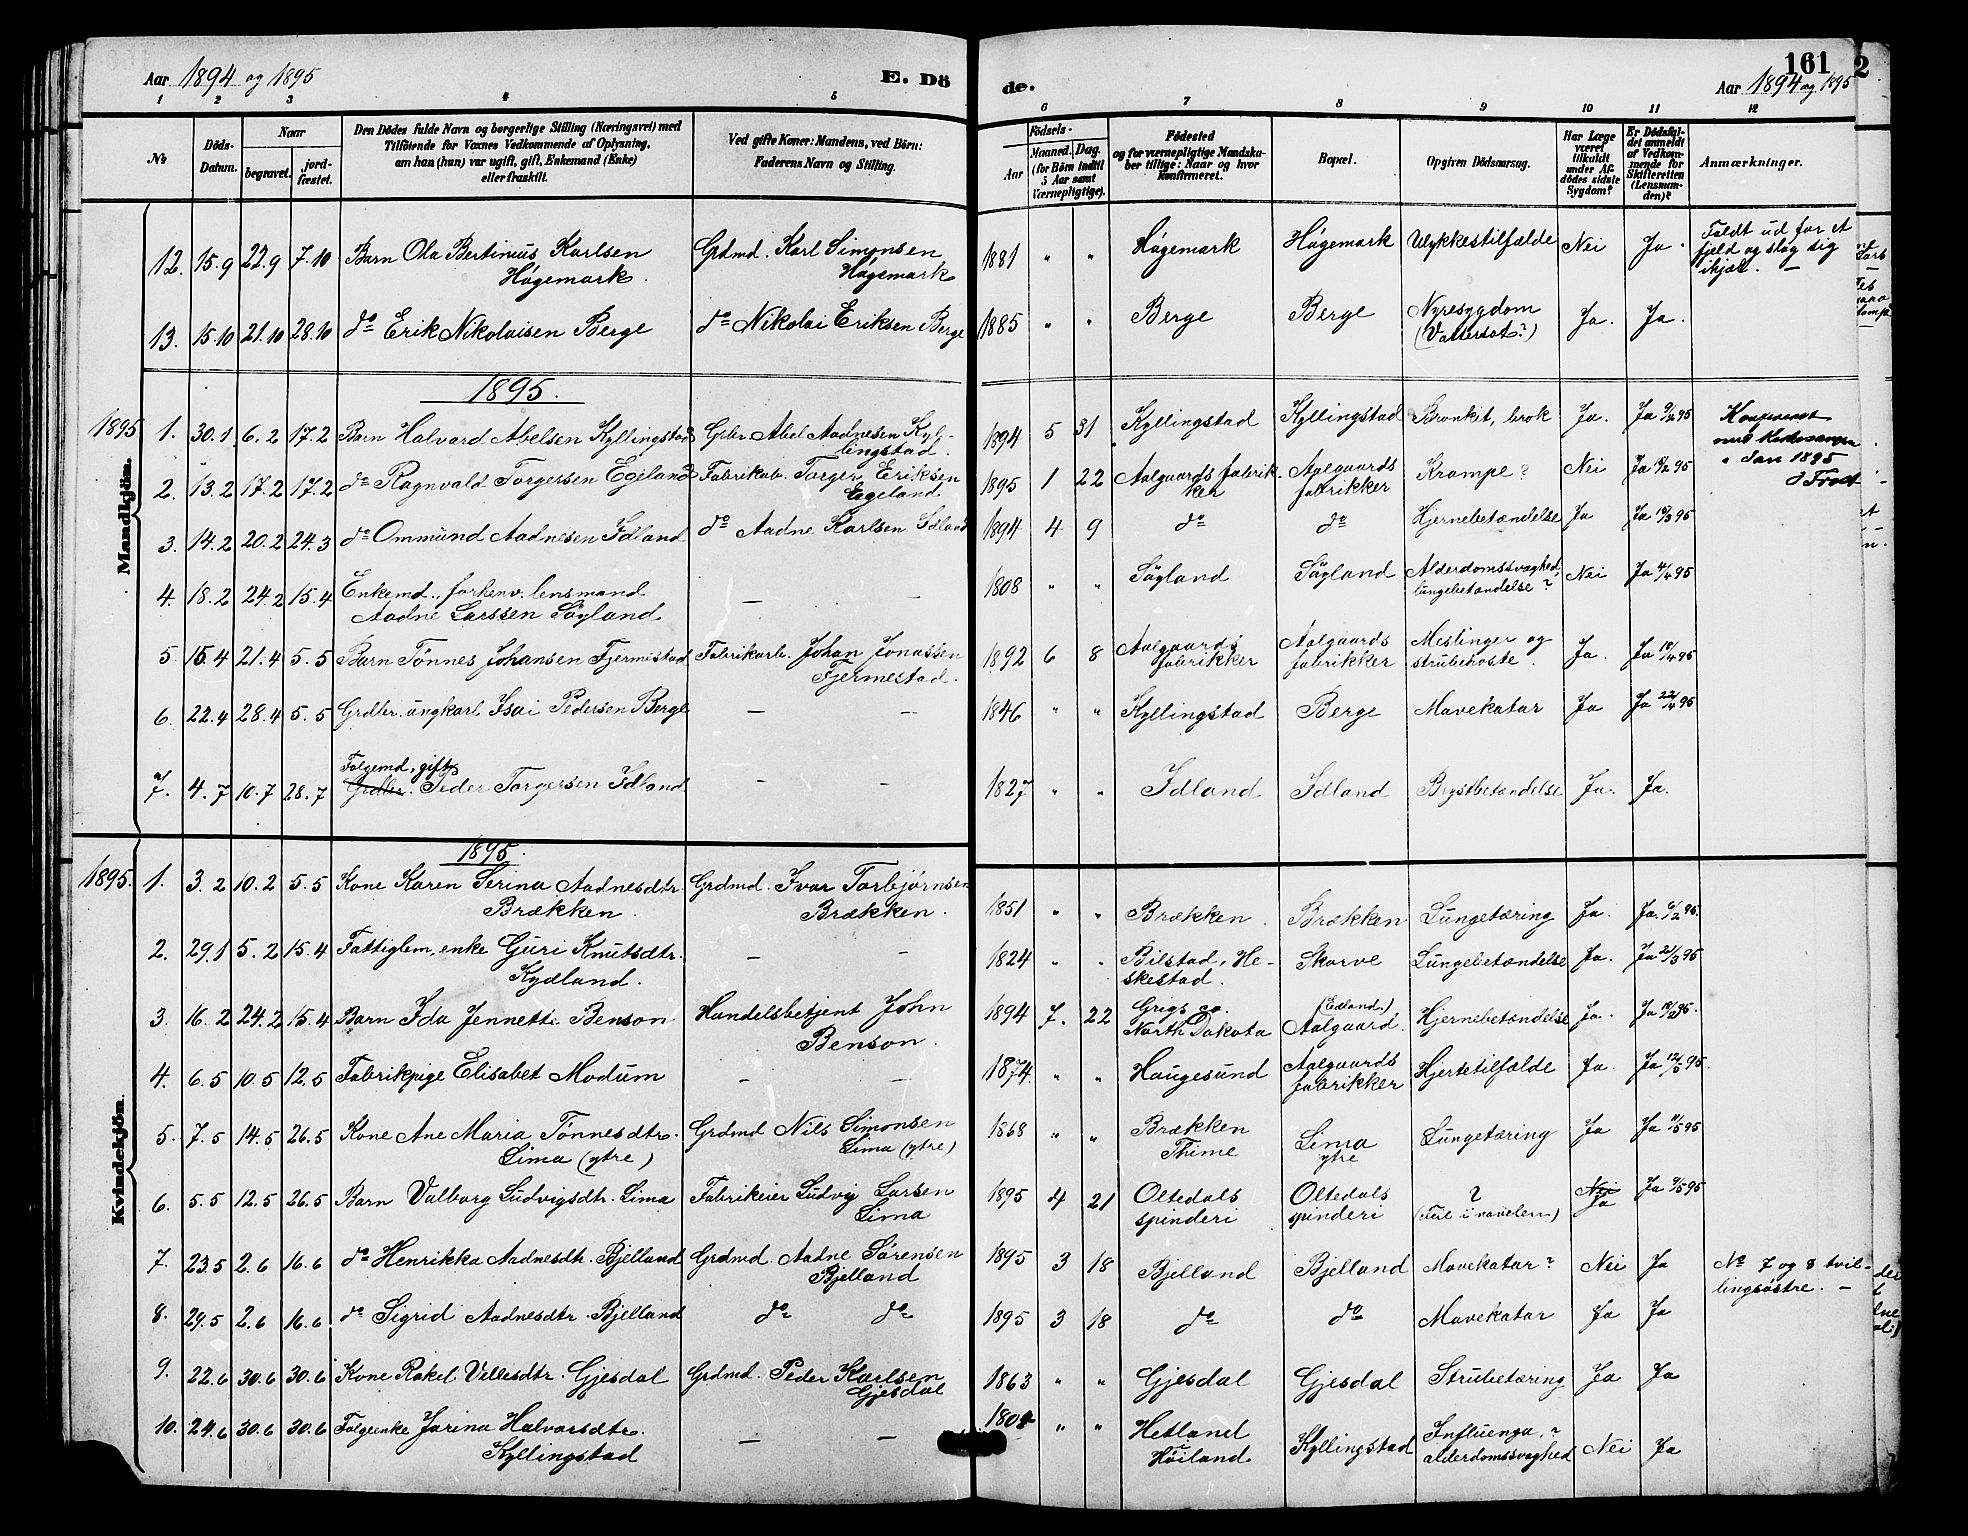 Aar 1894 og 1895
E. Dö
de.
161
2
Aar 1894 og 1895
1 2 3 4 5 6 7 8 9 10 11 12
No
Döds-Datum.
Naar
begravet.
jord-fæstet.
Den Dödes fulde Navn og borgerlige Stilling (Næringsvei) med
Tilföiende for Voxnes Vedkommende af Oplysning,
om han (hun) var ugift, gift, Enkemand (Enke)
eller fraskilt.
Ved gifte Koner: Mandens, ved Börn:
Faderens Navn og Stilling.
Födsels-
Aar
Maaned. Dag.
(for Börn indtil
5 Aar samt
Værnepligtige).
Födested
og for værnepligtige Mandska-
ber tillige: Naar og hvor
konfirmeret.
Bopæl.
Opgiven Dödsaarsag.
Har Læge
været
tilkaldt
under Af-
dödes sidste
Sygdom?
Er Dödsfal-
det anmeldt
af Vedkom-
mende for
Skifteretten
(Lensman-
den)?
Anmærkninger.
12. 15.9 22.9 7.10 Barn Ola Bertinius Karlsen Grdmd. Karl Simonsen 1881 " " Högemark Högemark Ulykkestilfælde Nei Ja. Faldt ud for et
Högemark. Högemark fjeld og slog sig
ihjæl. —
13. 15.10 21.10 28.10 do Erik Nikolaisen Berge do Nikolai Eriksen Berge 1885 " " Berge Berge Nyresygdom Ja. Ja.
(Vattersot?)
1895.
Mandkjön.
1895 1. 30.1 6.2 17.2 Barn Halvard Abelsen Kyllingstad Grbr. Abel Aadnesen Kyl- 1894 5 31 Kyllingstad Kyllingstad Bronkit, brok Ja. Ja 9/2 95
lingstad.
2. 13.2 17.2 17.2 do Ragnvald Torgersen Egeland Fabrikarb. Torger Eriksen 1895 1 22 Aalgaards fabrik- Aalgaards Krampe? Nei Ja 95 Jan 1895
Egeland ker fabrikker
3. 14.2 20.2 24.3 do Ommund Aadnesen Idland do Aadne Karlsen Idland 1894 4 9 do do Hjernebetændelse Ja Ja 95
4. 18.2 24.2 15.4 Enkemd., forhenv. lensmand — — 1808 " " Sögland Sögland Alderdomssvaghed, Nei Ja 4/4 95
Aadne Larssen Sögland lungebetændelse?
5 15.4 21.4 5.5 Barn Tönnes Johansen Fjermestad Fabrikarb. Johan Jonassen 1892 6 8 Aalgaards Aalgaards Meslinger og Ja. Ja 95
Fjermestad. fabrikker fabrikker strubehoste.
6. 22.4 28.4 5.5 Grdbr. ungkarl Isai Pedersen Berge — — 1846 " " Kyllingstad Berge Mavekatar Ja Ja 22/4 95
Folgemd, gift
7. 4.7 10.7 28.7 Grdbr. Peder Torgersen Idland — — 1827 " " Idland Idland Brystbetændelse Ja. Ja.
1895.
Kvindekjön.
1895. 1. 3.2 10.2 5.5 Kone Karen Serina Aadnesdtr. Grdmd. Ivar Torbjörnsen 1851 " " Brækken. Brækken Lungetæring Ja. Ja. 6/2 95.
Brækken. Brækken.
2. 29.1 5.2 15.4 Fattiglem, enke Guri Knutsdtr. — — 1824 " " Bilstad, He- Skorve Lungebetændelse Ja. Ja 21/3 95
Kydland. skestad.
3. 16.2 24.2 15.4 Barn Ida Jennette Benson Handelsbetjent John 1894 7. 22 Grigs co. (Edland.) Hjernebetændelse Ja. Ja 95.
Benson. North Dakota Aalgaard.
4. 6.5 10.5 12.5 Fabrikpige Elisabet Modum — — 1874. " " Haugesund Aalgaards Hjertetilfælde Ja. Ja 12/6 95.
fabrikker
5. 7.5 14.5 26.5 Kone Ane Maria Tönnesdtr. Grdmd Nils Simonsen 1868 " " Brækken Lima Lungetæring Ja Ja 11/5 95
Lima (ytre) Lima (ytre) Thime ytre
6. 5.5 12.5 26.5 Barn Valborg Ludvigsdtr. Lima Fabrikeier Ludvig Larsen 1895 4 21 Oltedals Oltedals ? Nei Ja 9/5 95
Lima spinderi spinderi (Feil i navelen) Ja
7. 23.5 2.6 16.6 do Henrikka Aadnesdtr. Bjelland Grdmd. Aadne Sörensen 1895 3 18 Bjelland Bjelland Mavekatar? Nei Ja No 7 og 8 tvil-
Bjelland lingsöstre. —
8. 29.5 2.6 16.6 do Sigrid Aadnesdtr. Bjelland do do 1895 3 18 do do Mavekatar Ja Ja
9. 22.6 30.6 30.6 Kone Rakel Vellesdtr. Gjesdal Grdmd. Peder Karlsen 1863 " " Gjesdal Gjesdal Strubetæring Ja Ja
Gjesdal
10. 24.6 30.6 30.6 Folgeenke Jorina Halvorsdtr. — — " " Hetland Kyllingstad Influenga,? Nei Ja
Kyllingstad Höiland alderdomssvaghed